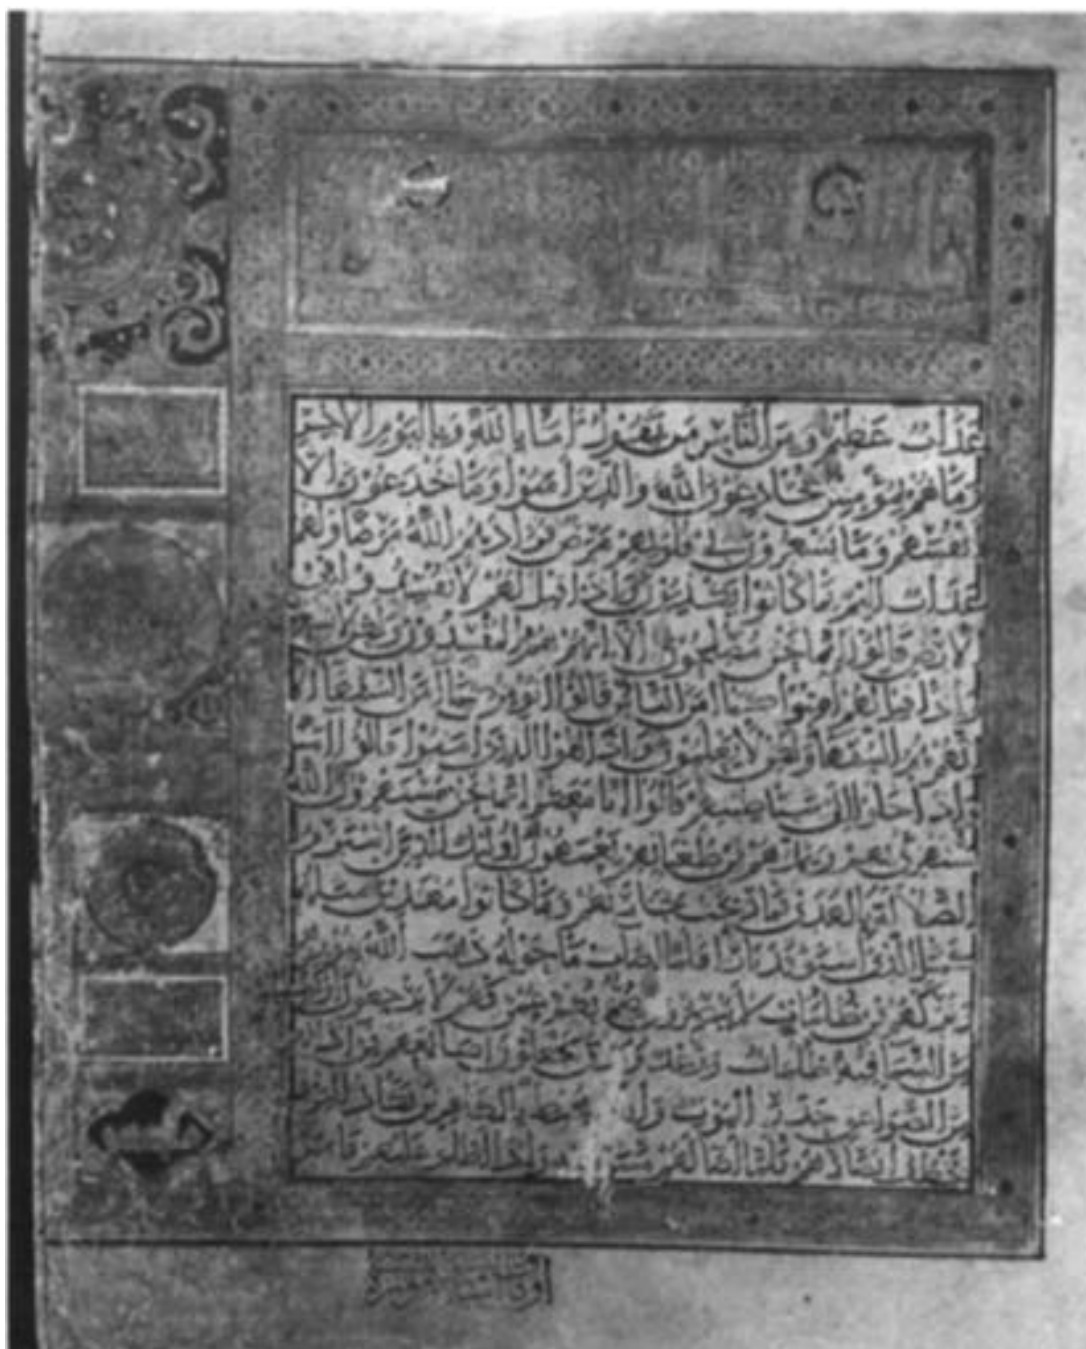 عذاب عظيم ومن الناس من يقول امنا بالله وباليوم الاخر
وما هم بمؤمنين يخادعون الله والذين امنوا وما يخدعون الا
انفسهم وما يشعرون في قلوبهم مرض فزادهم الله مرضا ولهم
عذاب اليم بما كانوا يكذبون واذا قيل لهم لا تفسدوا في
الارض قالوا انما نحن مصلحون الا انهم هم المفسدون ولكن لا
واذا قيل لهم امنوا كما امن الناس قالوا انؤمن كما امن السفهاء الا
انهم هم السفهاء ولكن لا يعلمون واذا لقوا الذين امنوا قالوا امنا
واذا خلوا الى شياطينهم قالوا انا معكم انما نحن مستهزؤن الله
يستهزئ بهم ويمدهم في طغيانهم يعمهون اولئك الذين اشتروا
الضلالة بالهدى فما ربحت تجارتهم وما كانوا مهتدين مثلهم
كمثل الذي استوقد نارا فلما اضات ما حوله ذهب الله بنورهم
وتركهم في ظلمات لا يبصرون صم بكم عمي فهم لا يرجعون او
من السما فيه ظلمات ورعد وبرق يجعلون اصابعهم في
من الصواعق حذر الموت والله محيط بالكافرين يكاد البرق
يخطف ابصارهم كلما اضا لهم مشوا فيه واذا اظلم عليهم قاموا